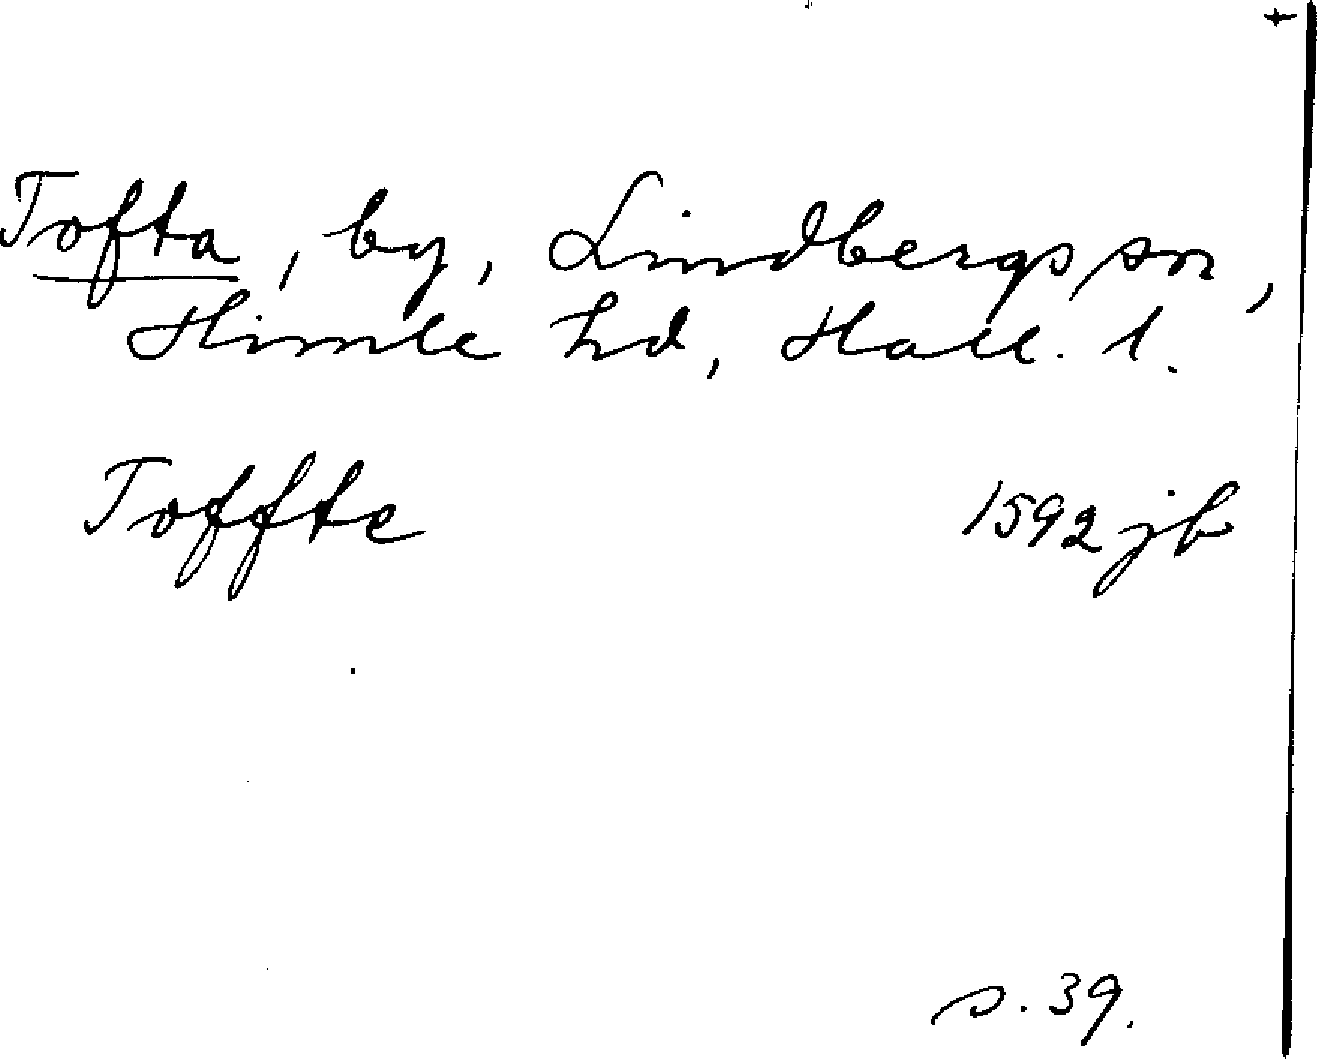 Tofta, by, Lindbergs sn,
Himle hd, Hall. l.
Toffte 1592 jb
s. 39.